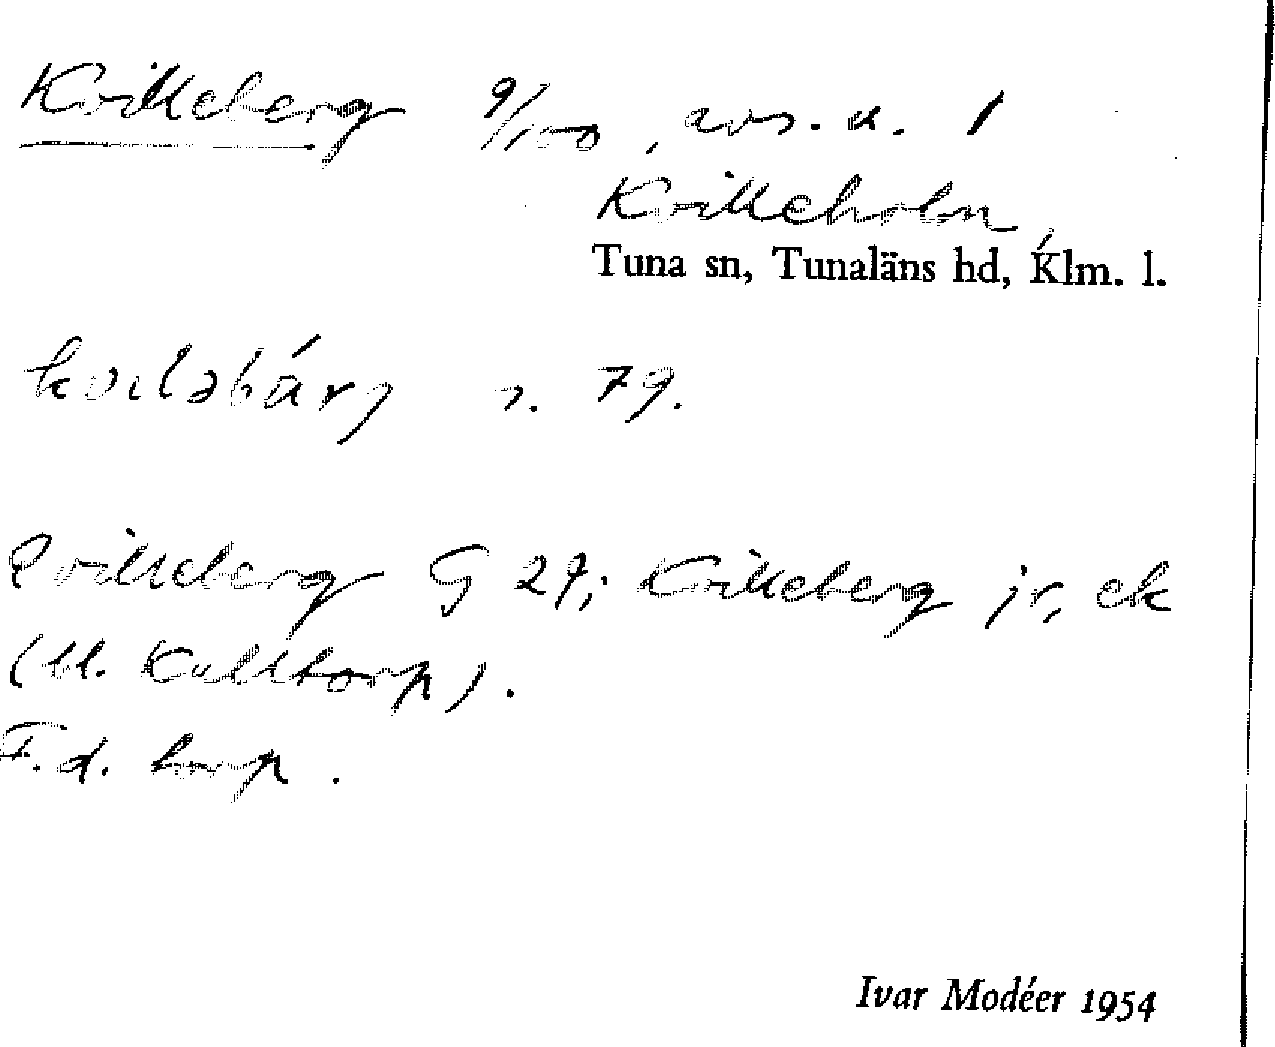 Kvilleberg 9/100, avs. u. 1
Kvilleholm,
Tuna sn, Tunaläns hd, Klm. l.
kvıləbárj 79.
Qvilleberg G 27; Kvilleberg jr, ek
(bl. Kulltorp).
F.d. torp.
Ivar Modéer 1954